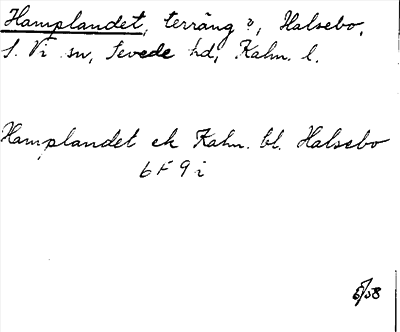 Hamplandet, terräng ?, Halsebo,
S. Vi sn, Sevede hd, Kalm. l.
Hamplandet ek Kalm. bl. Halsebo
6 F 9 i
5/58